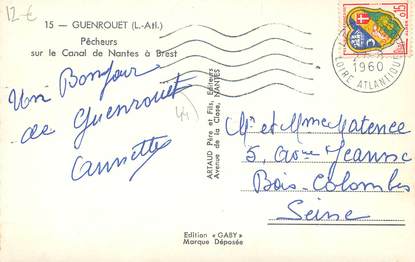 12-€
15 - GUENROUET (L.-Atl.)
Pêcheurs
sur le Canal de Nantes à Brest
Un Bonjour
de Guenrouet
Annette
44
ARTAUD Père et Fils, Editeurs
Avenue de la Close, NANTES
0,15
1960
LOIRE ATLANTIQUE
Mr et Mme Matence
5, Avenue Jeanne
Bois-Colombes
Seine
Edition « GABY »
Marque Déposée